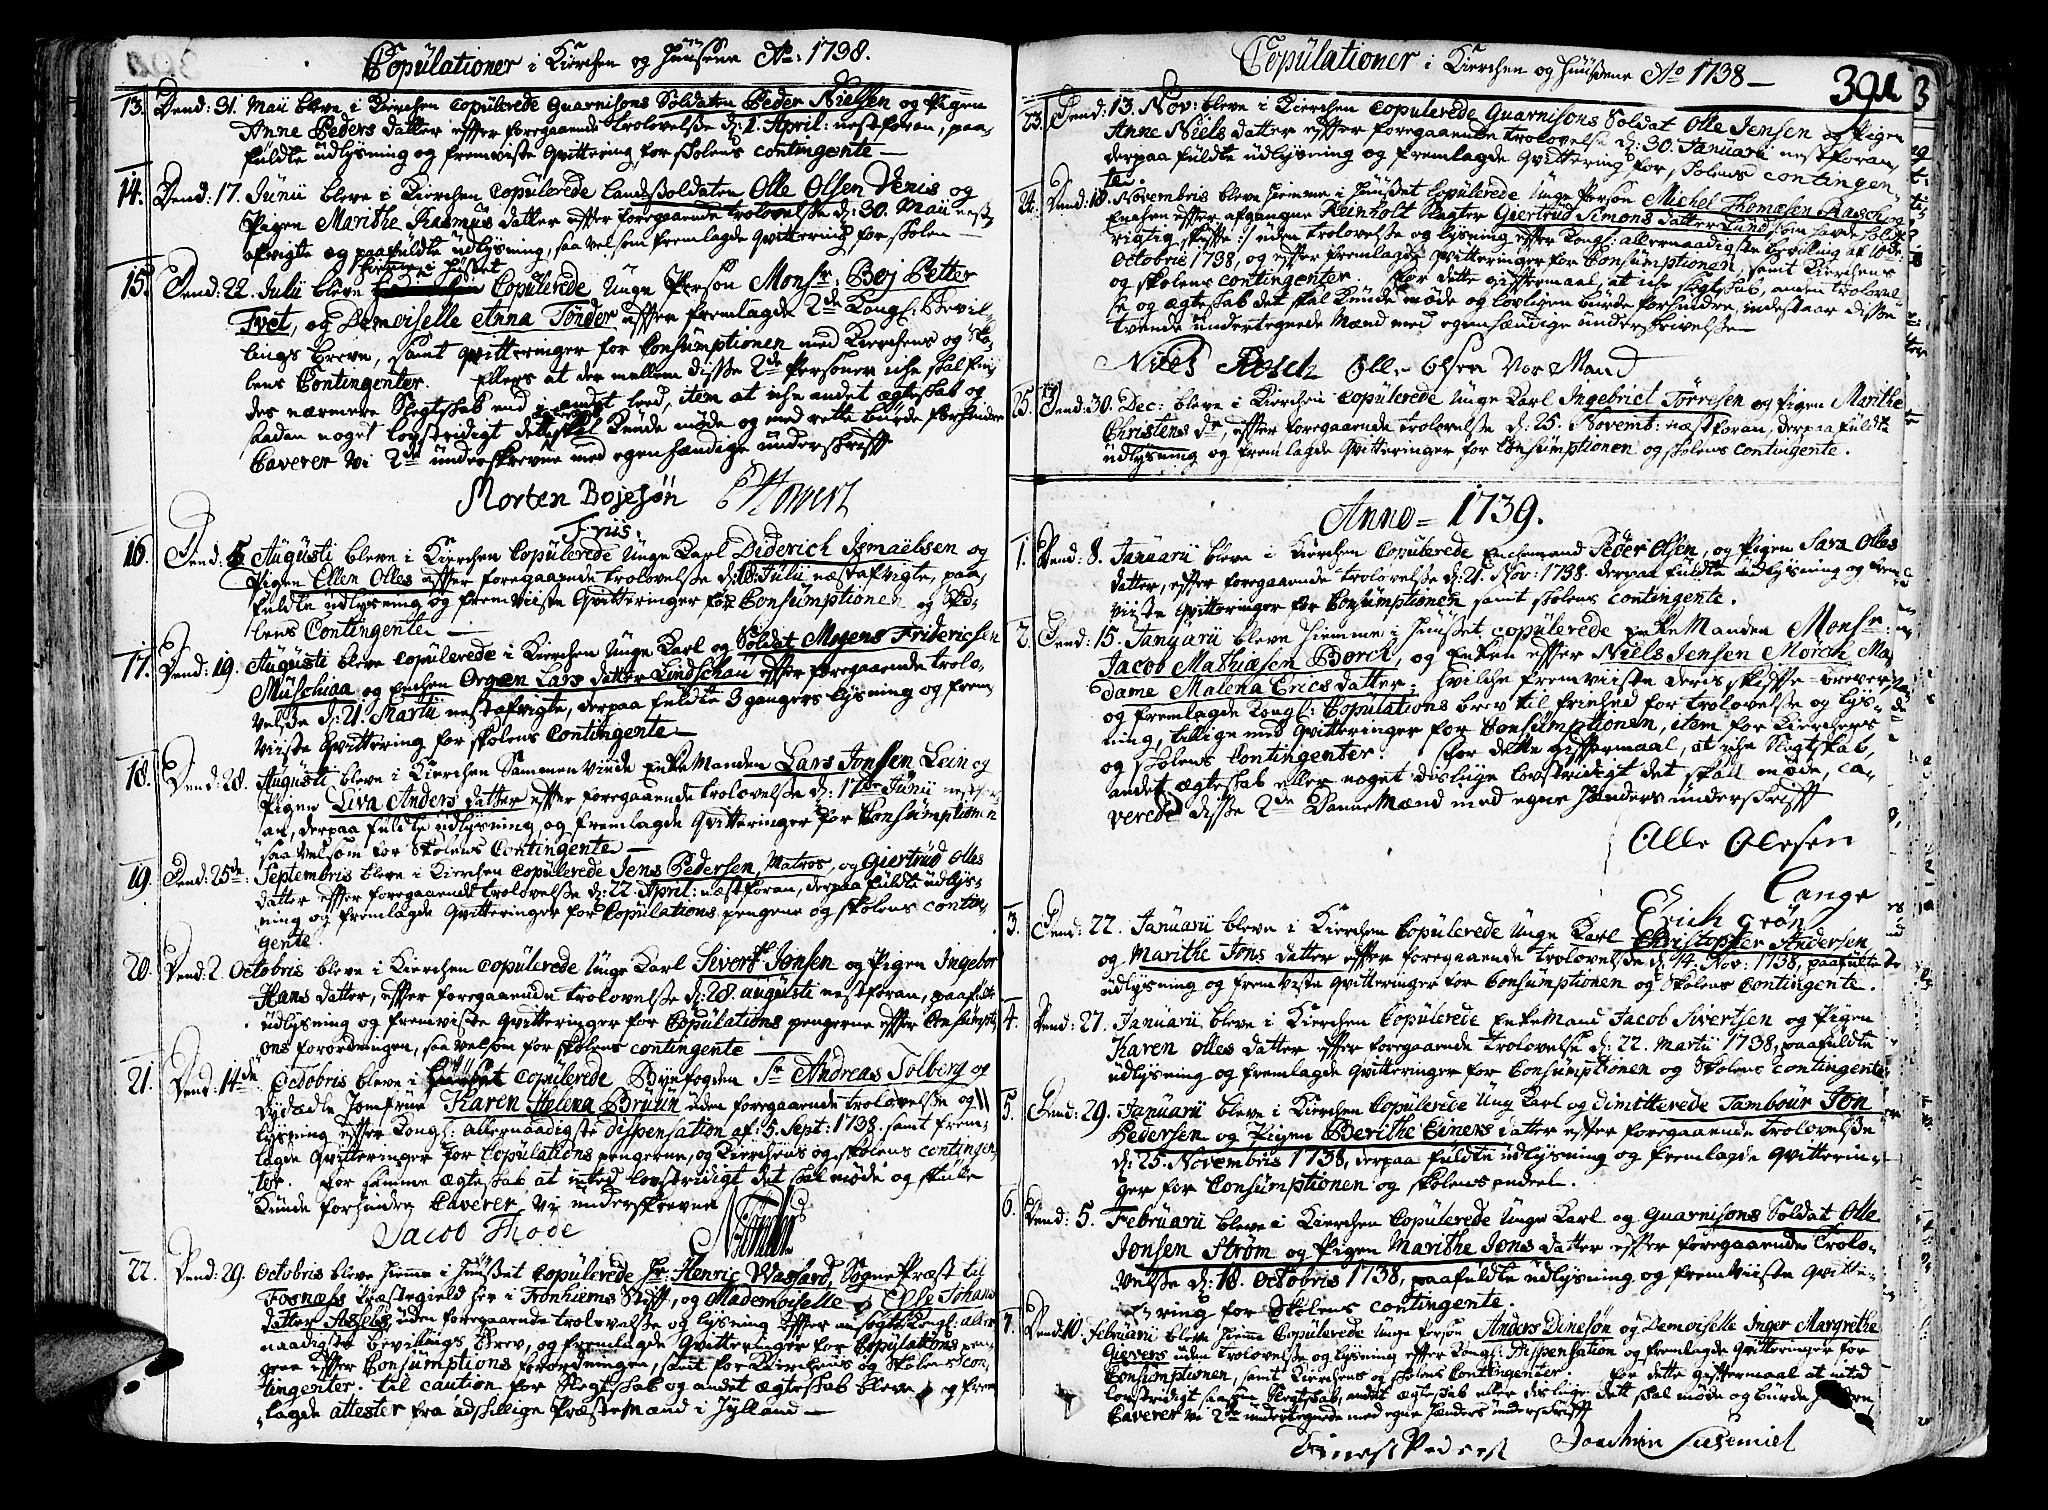 Copulationer i Kierchen og Huusene Ao: 1738.
13. Dend: 31. Maii bleve i Kierchen Copulerede Guarnisons Soldaten Peder Nielsen og Pigen
Anne Peders datter effter foregaaende trolovelse d: 1. April: nestforan, paa-
fuldte udlysning og fremviste Qvittering for skolens contingente
14. Dend: 17. Junii bleve i Kierchen Copulerede Landsoldaten Olle Olsen Venis og
Pigen Marithe Rasmus datter effter foregaaende trolovelse d: 30. Maii nest
afvigte og paafuldte udlysning, saa vel som fremlagde Qvittering for skolen
hiemme i Huset
15. Dend: 22. Julii bleve Copulerede Unge Person Monsr: Boj Petter
Tvet, og Demoiselle Anna Tønder effter fremlagde 2de Kongl: Bevil-
lings breve, samt Qvitteringer for Consumptionen med Kierchens og Sko-
lens Contingenter. Ellers at der mellem disse 2de Personer iche skal fin-
des nærmere Slegtskab end i andet leed, item at iche andet ægteskab og
saadan noget lovstridigt dette skal Kunde møde og med rette burde forhindre
Caverer vi 2de underskrevne med egenhændige underskrifft
Morten Bojesøn
Friis:
16. Dend: 5 Augusti bleve i Kierchen Copulerede Unge Karl Diderich Ismaëlsen og
Pigen Ellen Olles effter foregaaende trolovelse d: 18. Julii næstafvigte, paa-
fuldte udlysning og fremviiste Qvitteringer for Consumptionen og Sko-
lens Contingente
17. Dend: 19. Augusti bleve Copulerede i Kierchen Unge Karl og Soldat Mogens Fridericsen
Muschiaa og Enchen Orgæn Lars datter Lindschau effter foregaaende trolo-
velse d: 21. Martii nestafvigte, derpaa fuldte 3 gangers lysning og frem-
viiste Qvittering for skolens Contingente
18. Dend: 28. Augusti bleve i Kierchen Sammenviede Enkemanden Lars Jonsen Lein og
Pigen Liva Anders datter effter foregaaende trolovelse d: 17de Junii nestfor-
an, derpaa fuldte udlysning, og fremlagde Qvitteringer for Consumptionen
saa velsom for Skolens Contingente
19. Dend: 25de: Septembris bleve i Kierchen Copulerede Jens Pedersen, Matros, og Giertrud Olles
datter effter foregaaende trolovelse d: 22. April: næstforan, derpaa fuldte udlys-
ning og fremlagde Qvitteringer for Copulations pengene og skolens contin-
gente.
20. Dend: 2. Octobris bleve i Kierchen Copulerede Unge Karl Sivert Jonsen og Pigen Ingebor
Hans datter, effter foregaaende trolovelse d: 28. augusti nestforan, paafuldte
udlysning og fremviste Qvitteringer for Copulations pengerne effter Consumpti-
ons forordningen, saa velsom for skolens contingente
21. Dend: 14de Octobris bleve i huuset copulerede Byefogden Sr Andreas Solberg og
Dydædle Jomfrue Karen Helena Bruun uden foregaaende trolovelse og
lysning effter Kongl: allernaadigste dispensation af: 5. Sept: 1738. samt frem-
lagde Qvitteringer for Copulations pengerne, og Kierchens og skolens contingen-
ter. For samme ægteskab at inted lovstridigt det skal møde og skulle
Kunde forhindre Caverer vi underskrevne
Jacob Thode
22. Dend: 29. Octobris bleve hieme i huuset Copulerede Hr: Henric Wassard, Sogne Præst til
Fosnæs Præstegield her i Tronhiems Stifft, og Mademoiselle Else Johans
datter Assels uden foregaaende trolovelse og lysning effter ansøgte Kongl: aller
naadigste bevillings Brev, og fremlagde Qvitteringer for Copulations pen-
gene effter Consumptions forordningen, samt for Kierchens og Skolens con-
tingenter. til caution for Slegtskab og andet ægteskab bleve og frem
lagde attester fra adskillige Præstemænd i Jylland
Copulationer i Kierchen og Huusene Ao 1738
391
23. Dend: 13. Nov: bleve i Kierchen Copulerede Guarnisons Soldat Olle Jensen og Pigen
Anne Niels datter effter foregaaende trolovelse d: 30. Januarii nestforan,
derpaa fuldte udlysning og fremlagde Qvittering for, Skolens contingen-
te.
24. Dend: 18. Novembris bleve hiemme i Huuset Copulerede Unge Person Michel Thomesen Rasch og
Enchen effter afgangne Reinholt Slagter Giertrud Simons datter Lund som havde holdt
rigtig skiffte :/ uden trolovelse og lysning effter Kongl: allernaadigste bevilling af 10de
Octobris 1738, og effter fremlagde Qvitteringer for Consumptionen, samt Kierchens
og skolens contingenter. For dette gifftermaal, at iche slegtskab, anden trolovel-
se og ægteskab det skal Kunde møde og lovligen burde forhindre, indestaar disse
tvende undertegnede Mænd med egenhændige underskrivelse
Niels Rosch Olle Olsen Nor Mand
25. Dend: 30. Dec: bleve i Kierchen Copulerede Unge Karl Ingebriet Torresen og Pigen Marithe
Christens dr, effter foregaaende trolovelse d: 25. Novemb: næstforan, derpaa fuldte
udlysning og fremlagde Qvitteringer for Consumptionen og skolens contingente.
Anno = 1739.
1. Dend: 8. Januarii bleve i Kierchen Copulerede Enchemand Peder Olsen, og Pigen Sara Olles
datter, effter foregaaende trolovelse d: 21. Nov: 1738. derpaa fuldte udlysning og frem
viiste Qvitteringer for Consumptionen samt skolens contingente.
2. Dend: 15. Januarii bleve hiemme i huuset, copulerede Enke Manden Monsr:
Jacob Mathiæsen Borch, og Enken effter Niels Jensen Morch Ma-
dame Malena Erics datter. hvilche fremviiste deris skiffte-brever,
og fremlagde Kongl: Copulations brev til frihed for trolovelse og lys-
ning, tillige med Qvitteringer for Consumptionen, item for Kierchens
og skolens Contingenter. for dette gifftermaal, at iche Slegtskab,
andet ægteskab eller noget dislige lovstridigt det skall møde, ca-
verede disse 2de Dannemænd med egne hænders underskrifft
Olle Olesen
Lange
Erich Grøn
3. Dend: 22. Januarii bleve i Kierchen Copulerede Unge Karl Christopher Andersen
og Marithe Jons datter effter foregaaende trolovelse d: 14. Nov: 1738, paafulte
udlysning og fremviste Qvitteringer for Consumptionen og Skolens Contingente.
4. Dend: 27. Januarii bleve i Kierchen Copulerede Enkemand Jacob Sivertsen og Pigen
Karen Olles datter effter foregaaende trolovelse d: 22. Martii 1738, paafuldte
udlysning og fremlagde Qvitteringer for Consumptionen og Skolens contingente
5. Dend: 29. Januarii bleve i Kierchen Copulerede Ung Karl og dimitterede Tambour Jon
Pedersen og Pigen Berithe Einers datter effter foregaaende trolovelse
d: 25. Novembris 1738, derpaa fuldte udlysning og fremlagde Qvitterin-
ger for Consumptionen og skolens andeel.
6. Dend: 5. Februarii bleve i Kierchen Copulerede Unge Karl og Guarnisons Soldat Olle
Jonsen Strøm og Pigen Marithe Jons datter effter foregaaende Trolo-
velse d: 18. Octobris 1738, paafuldte udlysning og fremviiste Qvitte-
ring for Skolens contingente.
7. Dend: 10. Februarii bleve hieme Copulerede Unge Person Anders Dinesøn og Demoiselle Inger Margrethe
uden trolovelse og lysning effter Kongl: Dispensation og fremlagde Qvitteringer for
Consumptionen, samt Kierchens og skolens Contingenter. for dette gifftermaal at inted
lovstridigt saasom Slegtskab, andet ægteskab eller deslige dett skal møde og burde hindre,
Caverer vi 2de undertegnede med egne hænders underskrifft
Joachim Susemiel